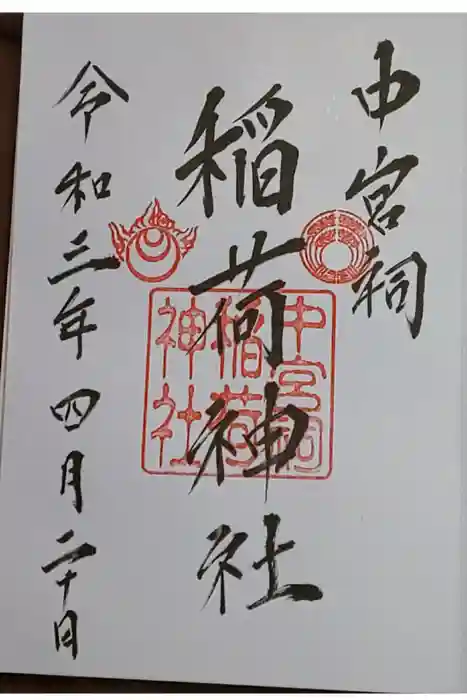 中宮祠
稲荷神社
令和三年四月二十日
中宮祠
稲荷
神社